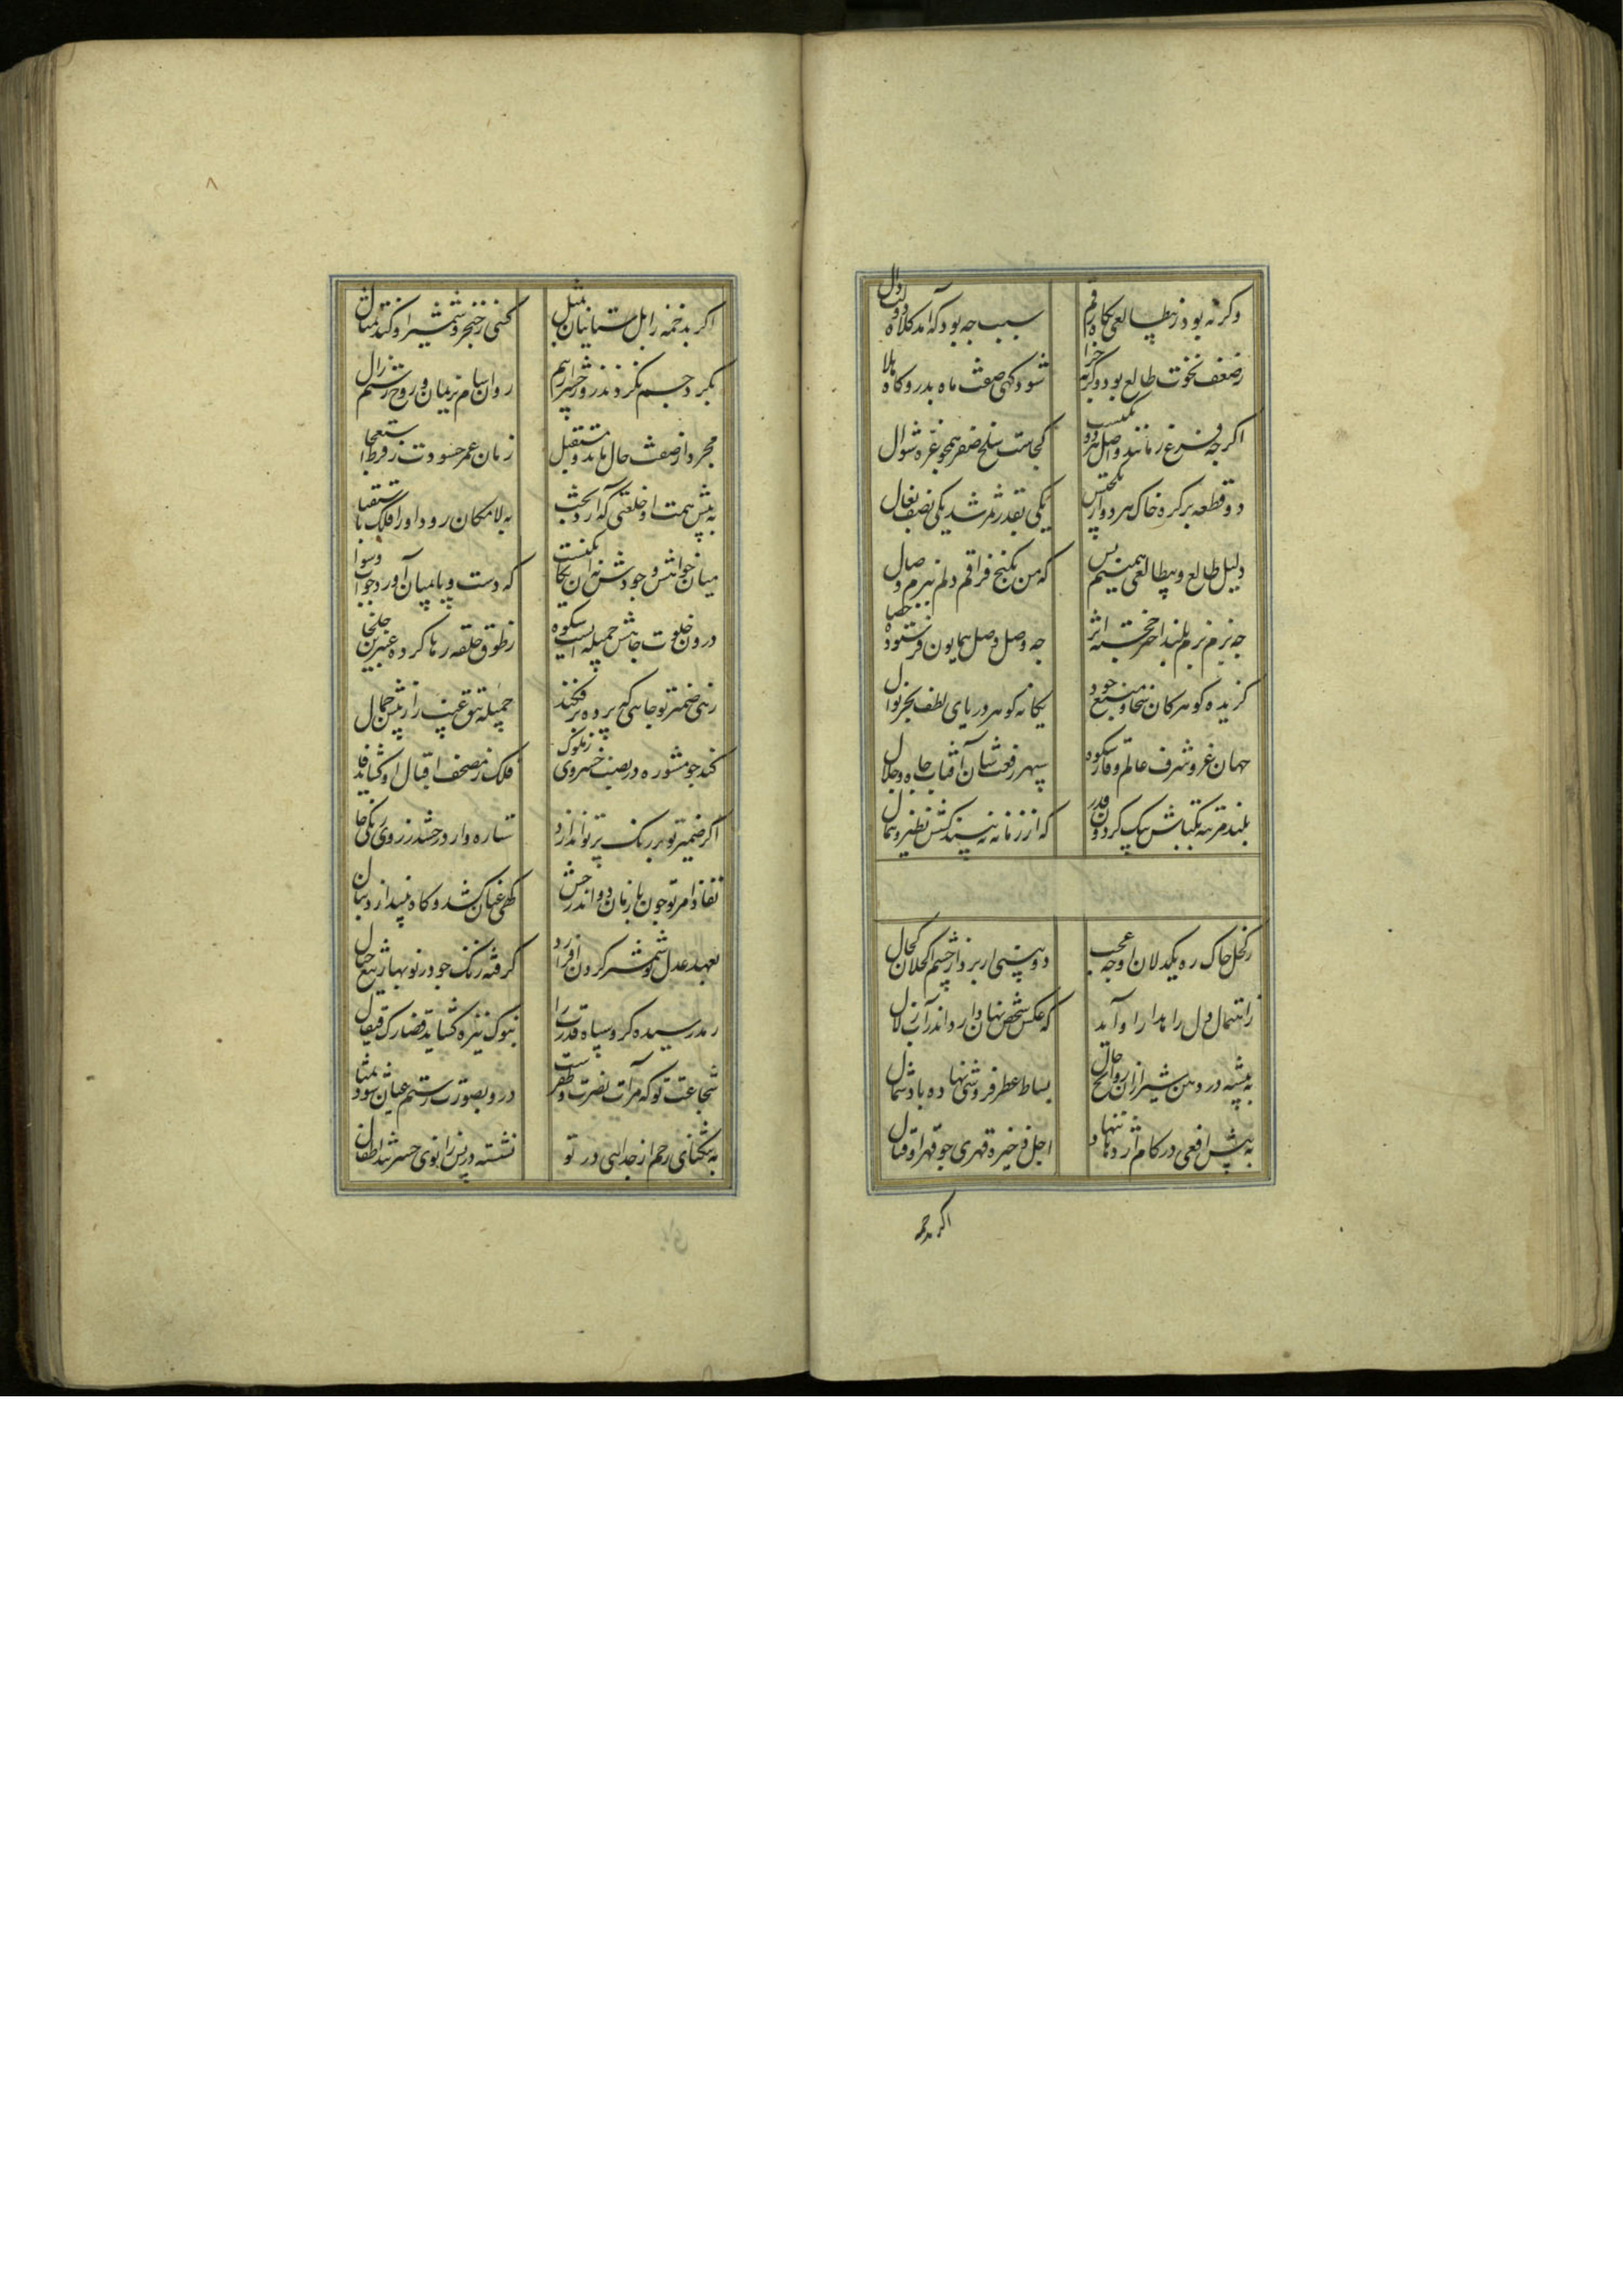 وکرنه بود زبیطالعی بکاه رقم سبب چه بود که آمد کلاه
زضعف نخوت طالع بود وکرنه چرا شود کهی صفت ماه بدر و کاه هلال
اکرچه فرع زمانند و اصل هر دو یکیست کجاست سلخ صفر همچو غره شوال
دو قطعه بر کره خاک هر دو از یکجنس یکی بقدر ثمر شد یکی نصف نعال
دلیل طالع و بیطالعی همینم بس که من بکنج فراقم دلم ببزم وصال
چه بزم بزم بلند اختر خجسته اثر چه وصل وصل همایون فر ستوده خصال
کزیده کوهر کان سخا و منبع جود یکانه کوهر دریای لطف بحر نوال
جهان عز و شرف عالم وقار و سکوه سپهر رفعت و شان آفتاب جاه و جلال
بلند مرتبه یکتاش بیک کردون قدر که از زمانه نبیند کسش نظیر و همال
زکحل خاک ره یکدلان او چه عجب دو بینی ار برد از چشم احولان کحال
که عکس شخص نهان دارد اندر آب زلال
به بیشه در دهن شیر از آن روایح حال بساط عطرفروشی نهاده باد شمال
به پیش افعی در کام اژدها تنها اجل ذخیره قهری چو قهر او قتال
اکر بدخمه
اکر بدخمه زابلستانیان بمثل کنی ز خنجر و شمشیر او کند تمثال
بکرد جسم نکردند روز حشر از بیم روان سام نریمان و روح رستم زال
مجرد از صفت حال ماند و مستقبل زمان عمر حسودت ز فرط استعجال
به پیش همت او خلعتی که آرد بخت به لامکان رود او را فلک باستقبال
میان خواهش و جودش نه آن یکانکیست که دست و پا بمیان آورد جواب و سوال
درون خلوت جاهش جمیله ایست سکوه ز طوق حلقه رها کرده عنبرین خلخال
زنی ضمیر تو جاهی که پرده برفکند جمیله تتق غیب را ز پیش جمال
کند چو مشوره در نصب خسروی ز ملوک فلک ز مصحف اقبال او کشاید فال
اکر ضمیر تو بر رنک پرتو اندازد ستاره وار درخشد ز روی زنکی خال
نفاذ امر تو چون بازمان دواند رخش کهی عنان کشد و کاه بیندازد دنبال
بعهد عدل تو شمشیر کردن افرازد کرفته زنک چو در نوبهار تیغ جبال
بنوک نیزه کشاید قضا رک قیفال
شجاعت تو که مرآت نصرت و ظفرست درو بصورت رستم عیان شود تمثال
به تنکنای رحم از جدائی در تو نشسته در پس زانوی حسرتند اطفال